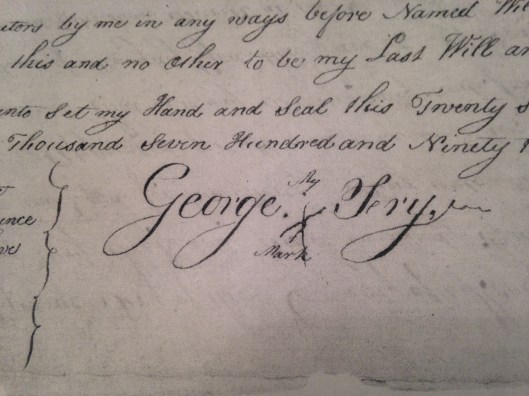 utors by me in any ways before Named Wil
this and no other to be my Last Will an
ento Set my Hand and Seal this Twenty s
Thousand Seven Hundred and Ninety
George. My
Mark
ence
ve